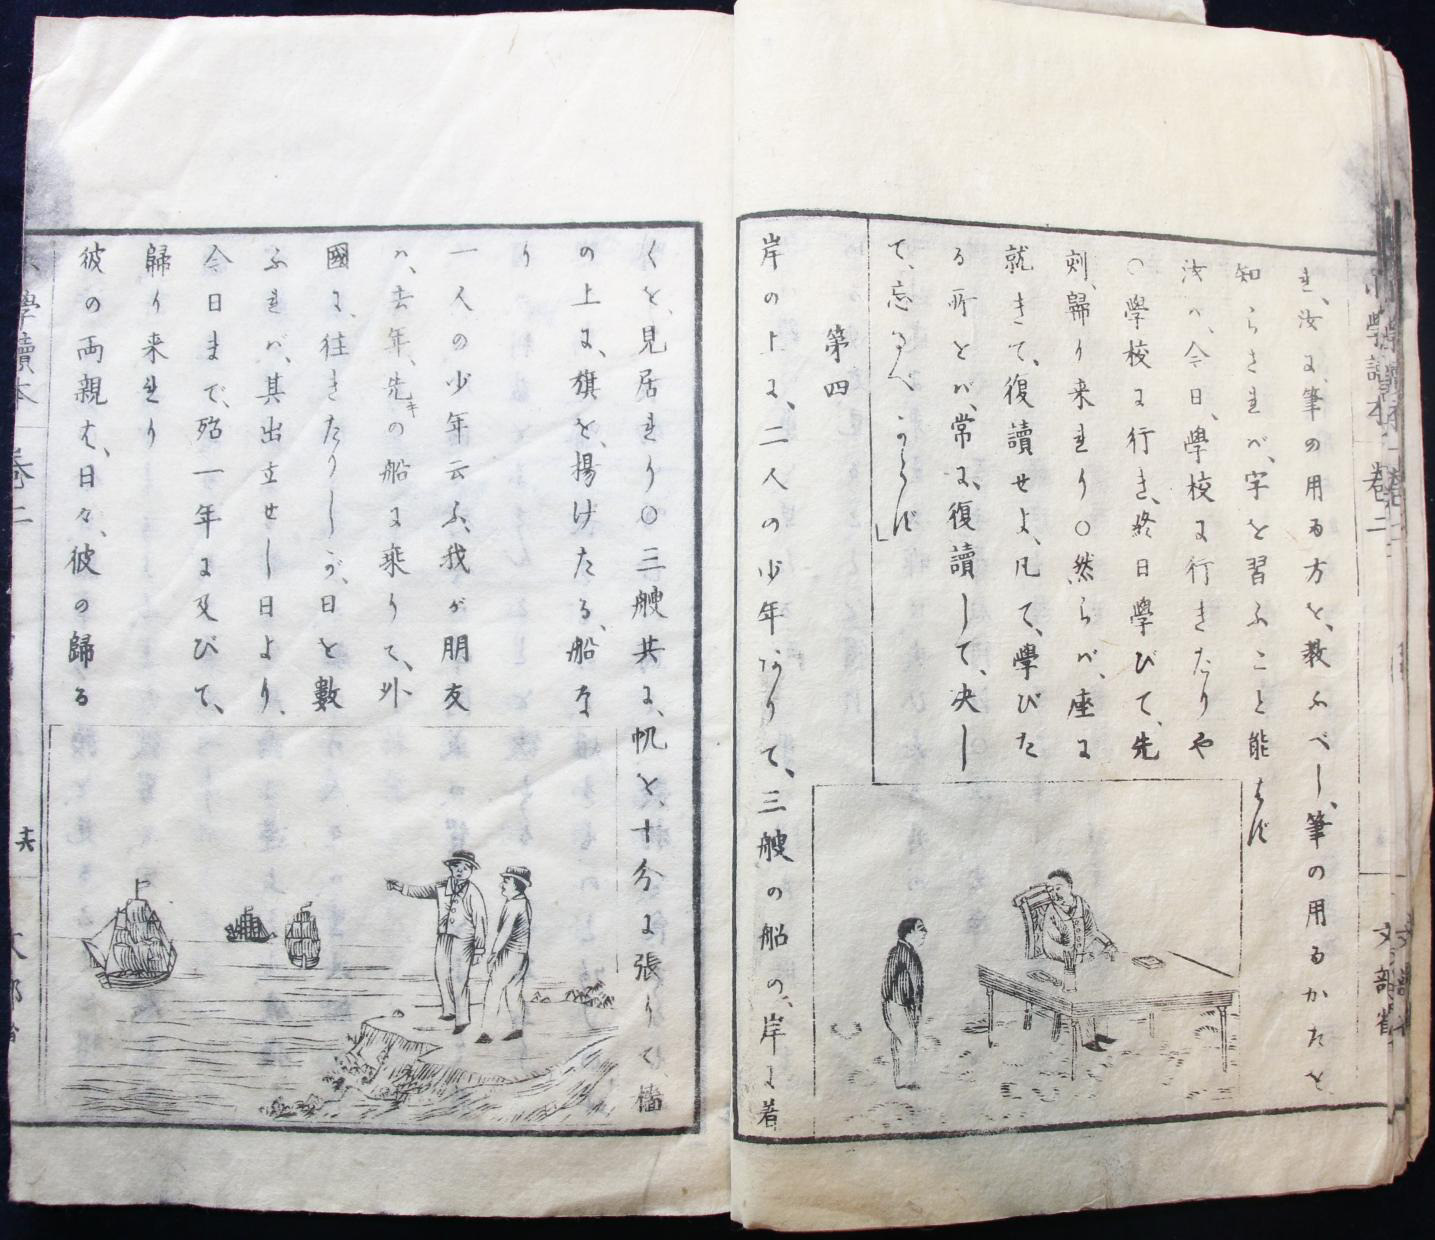 小學讀本 卷二 文部省
れ、汝に筆の用ゐ方を、敎ふべし、筆の用ゐかたを
知らざれバ、字を習ふこと能はず
汝ハ、今日、學校に行きたりや
○學校に行き、終日學びて、先
刻、歸り来れり○然らバ、座に
就きて、復讀せよ、凡て、學びた
る所をバ、常に、復讀して、决し
て、忘るべからず」
第四
岸の上に、二人の少年ありて、三艘の船の、岸に着
くを、見居れり○三艘共に、帆を、十分に張りて、檣
の上に、旗を、揚げたる、船な
り
一人の少年云ふ、我が朋友
ハ、去年、先キの船に乘りて、外
國に、往きたりしが、日を數
ふれバ、其出立せし日より、
今日まで、殆一年に及びて、
歸り来れり
彼の両親も、日々、彼の歸る
小學讀本 卷二 十六 文部省